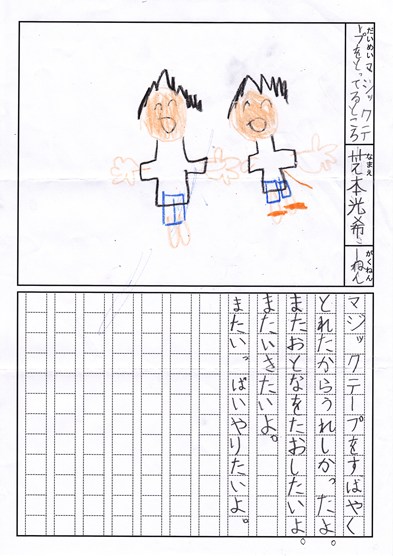 だいめい
マジックテ
ープをとってるところ
なまえ
本光希
がくねん
一ねん
マジックテープをすばやく
とれたからうれしかったよ。
またおとなをたおしたいよ。
またいきたいよ。
またいっぱいやりたいよ。